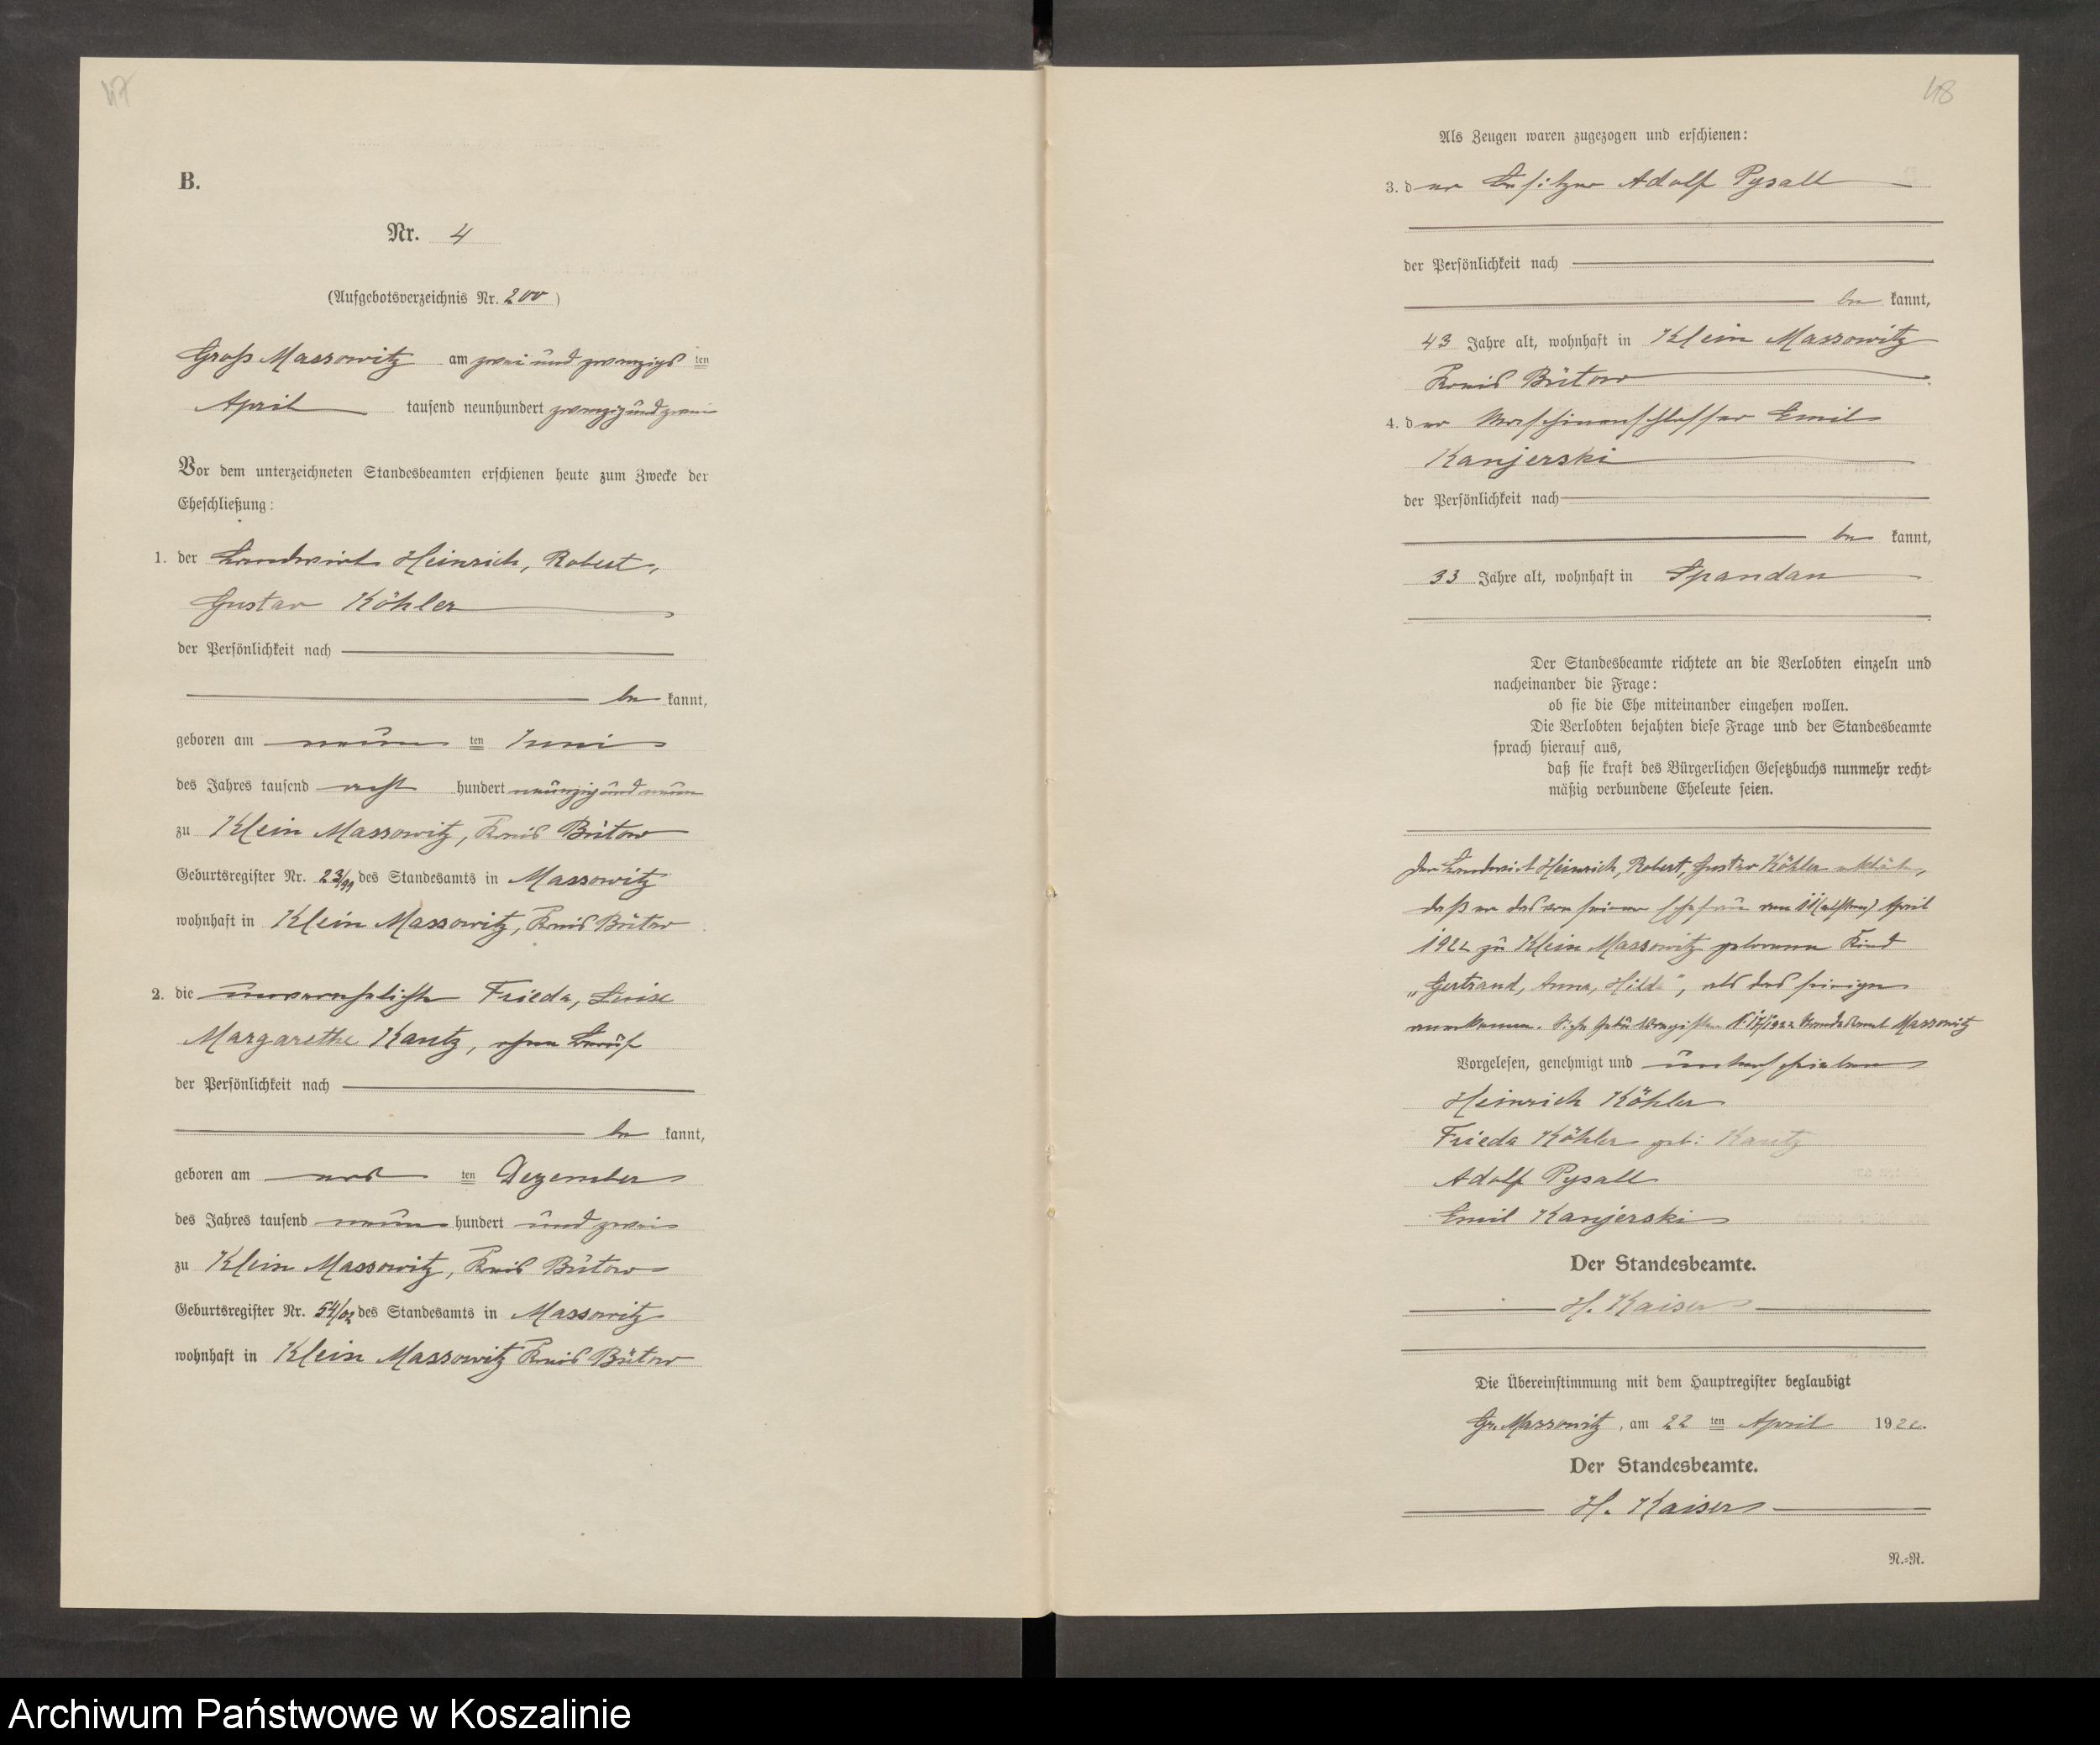 47
B.
Nr. 4
(Aufgebotsverzeichnis Nr. 200)
Groß Massowitz am zwei und zwanzigsten
April tausend neunhundert zwanzig und zwei
Vor dem unterzeichneten Standesbeamten erschienen heute zum Zwecke der
Eheschließung:
1. der Landwirt Heinrich, Robert,
Gustav Köhler
der Persönlichkeit nach
bekannt,
geboren am neunten Juni
des Jahres tausend acht hundert neunzig und neun
zu Klein Massowitz, Kreis Bütow
Geburtsregister Nr. 23/99 des Standesamts in Massowitz
wohnhaft in Klein Massowitz, Kreis Bütow
2. die unverehelichte Frieda, Luise
Margarethe Kautz, ohne Beruf
der Persönlichkeit nach
bekannt,
geboren am ten Dezember
des Jahres tausend neun hundert und zwei
zu Klein Massowitz, Kreis Bütow
Geburtsregister Nr. 54/02 des Standesamts in Massowitz
wohnhaft in Klein Massowitz Kreis Bütow
48
Als Zeugen waren zugezogen und erschienen:
3. der Besitzer Adolf Pysall
der Persönlichkeit nach
bekannt,
43 Jahre alt, wohnhaft in Klein Massowitz
Kreis Bütow
4. der Maschinenschlosser Emil
Kanjerski
der Persönlichkeit nach
bekannt,
33 Jahre alt, wohnhaft in Spandau
Der Standesbeamte richtete an die Verlobten einzeln und
nacheinander die Frage:
ob sie die Ehe miteinander eingehen wollen.
Die Verlobten bejahten diese Frage und der Standesbeamte
sprach hierauf aus,
daß sie kraft des Bürgerlichen Gesetzbuchs nunmehr recht-
mäßig verbundene Eheleute seien.
Der Landwirt Heinrich, Robert, Gustav Köhler erklärte,
daß er das von seiner Ehefrau am 11 (elften) April
1922 zu Klein Massowitz geborene Kind
„Gertraud, Anna, Hilda", als das seinige
anerkenne. Siehe Geburtsregister N. 17/1922 Standesamt Massowitz
Vorgelesen, genehmigt und unterschrieben
Heinrich Köhler
Frieda Köhler geb: Kautz
Adolf Pysall
Emil Kanjerski
Der Standesbeamte.
H. Kaiser
Die Übereinstimmung mit dem Hauptregister beglaubigt
Gr. Massowitz, am 22 ten April 1922.
Der Standesbeamte.
H. Kaiser
N.-R.
Archiwum Państwowe w Koszalinie